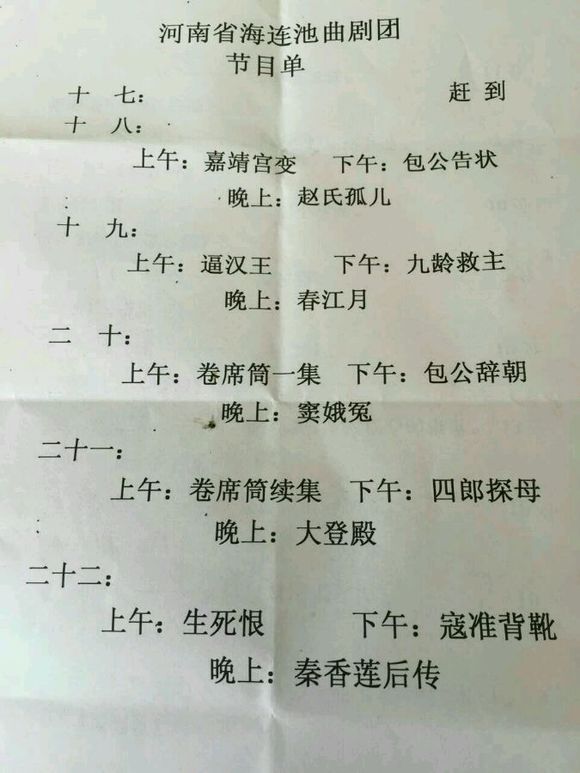 河南省海连池曲剧团
节目单
十 七： 赶 到
十 八：
上午：嘉靖宫变 下午：包公告状
晚上：赵氏孤儿
十 九：
上午：逼汉王 下午：九龄救主
晚上：春江月
二 十：
上午：卷席筒一集 下午：包公辞朝
晚上：窦娥冤
二十一：
上午：卷席筒续集 下午：四郎探母
晚上：大登殿
二十二：
上午：生死恨 下午：寇准背靴
晚上：秦香莲后传